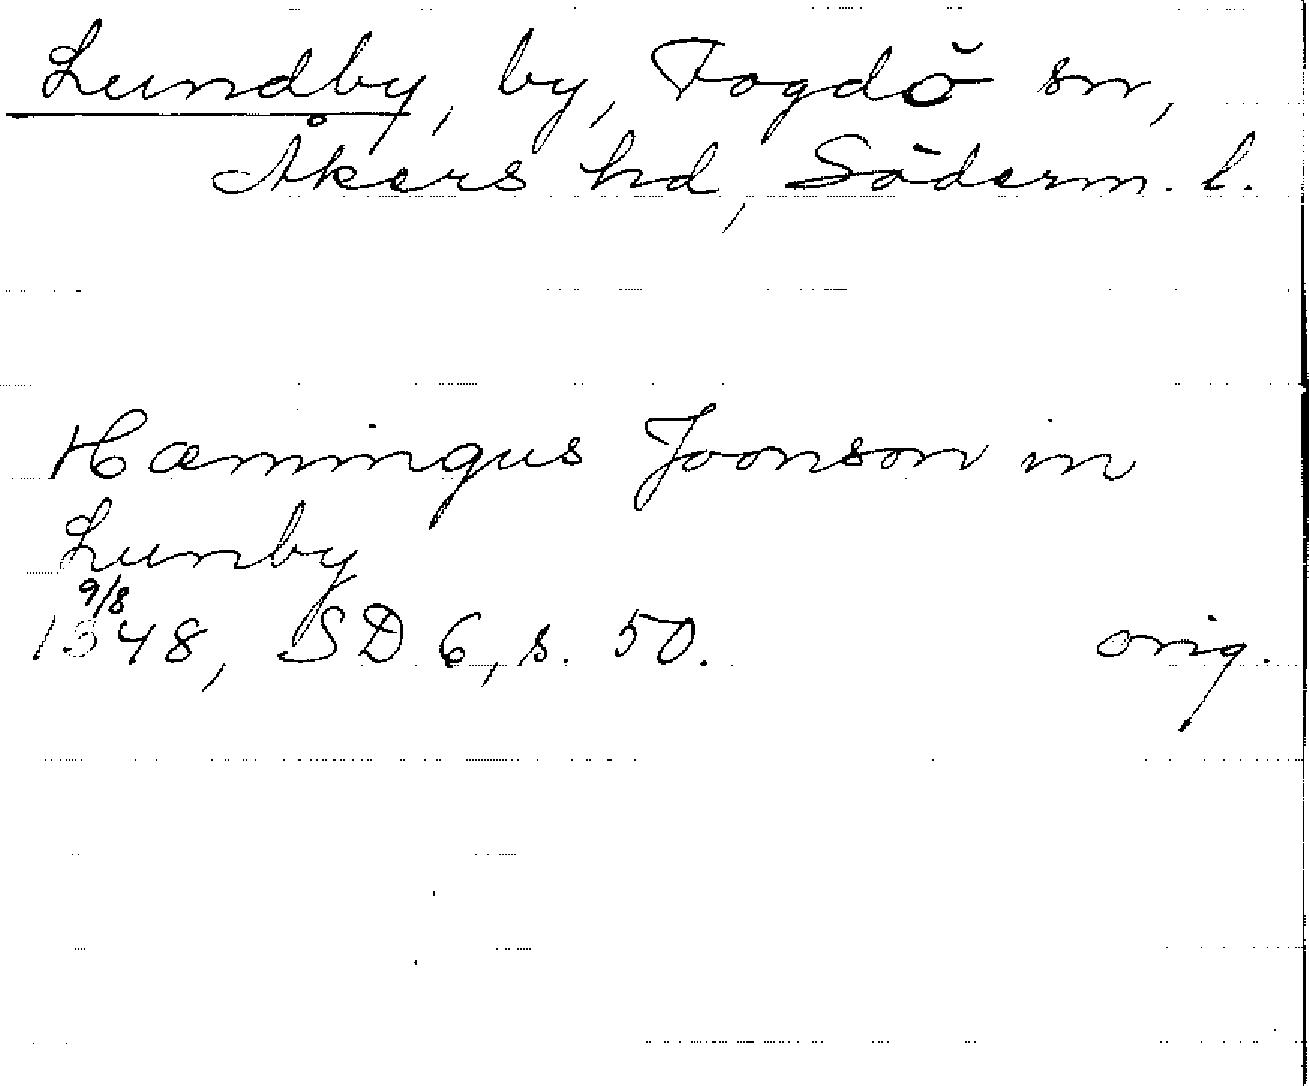 Lundby, by, Fogdö sn,
Åkers hd, Söderm. l.
Hæmingus Joonson in
Lunby
9/8
1348, SD 6, s. 50. orig.